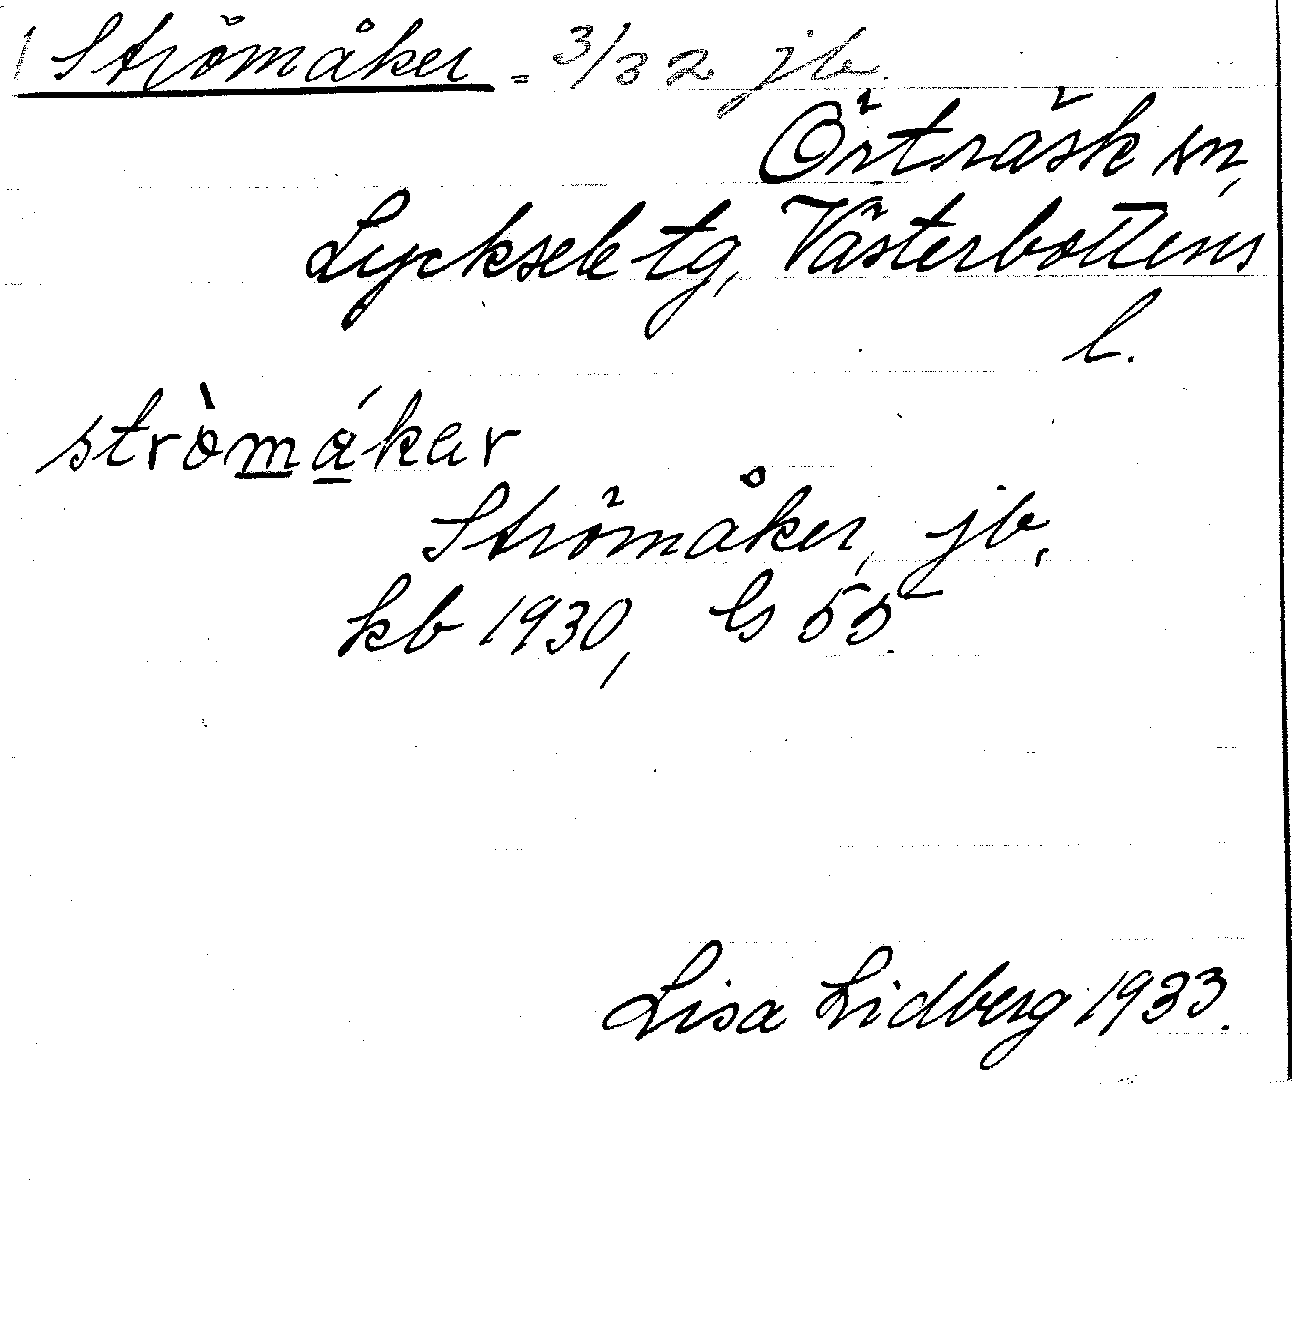 Strömåker = 3/32 jb.
Örträsk sn,
Lycksele tg, Västerbottens
l.
strò̀mákar
Strömåker, jb,
kb 1930, Gs 55.
Lisa Lidberg 1933.